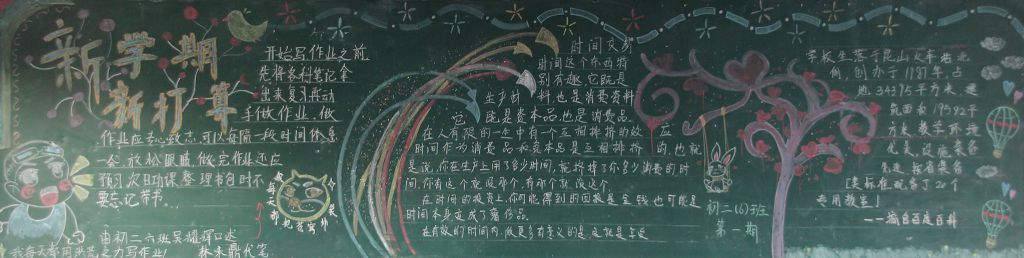 新学期
新打算
开始写作业之前,
先将各科笔记拿
出来复习再动
手做作业,做
作业应专心致志,可以每隔一段时间休息
一会,放松眼睛,做完作业还应
预习次日功课,整理书包时不
要忘记带书...
由初二六班吴耀挥口述
林来鼎代笔
我每天都用洪荒之力写作业!
每天都把苦写外
时间交易
时间这个东西特
别有趣,它既是
生产材料也是消费资料
它既是资本品也是消费品
在人有限的一生中有一个互相排挤的效应
时间作为消费品和资本品是互相排挤的,也就
是说,你在生产上用了多少时间,就排挤了你多少消费的时
间,你有这个就没那个,有那个就没这个.
在时间的投资上,你可能得到的回报是金钱,也可能是
时间本身变成了奢侈品.
在有效的时间内,做更多有意义的是,这就是年轻
初二(6)班
第一期
学校坐落于昆山火车站北
侧,创办于1987年,占
地34375平方米,建
筑面积19592平
方米,教学环境
优美,设施装备
先进,按省装备
Ⅰ类标准配备了20个
专用教室"
——摘自百度百科